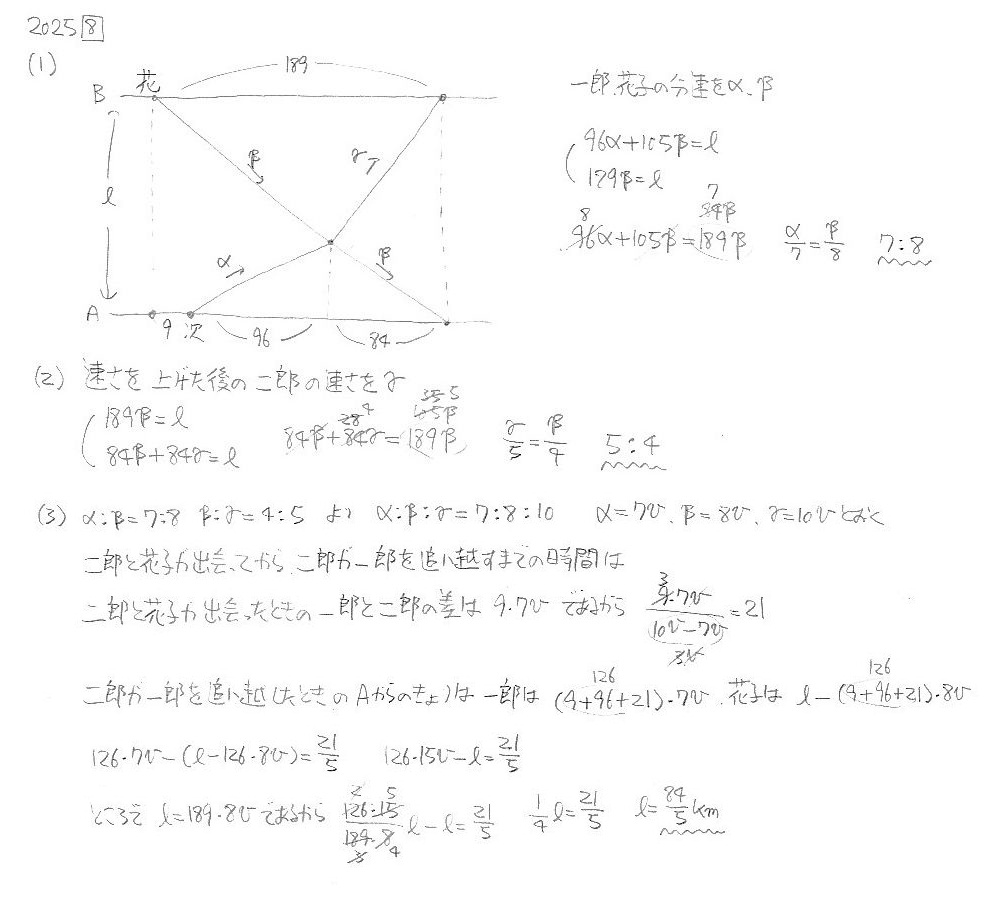 2025 8
(1)
189
B 花
一郎,花子の分速をα、β
l
β
γ
96α+105β=l
189β=l
96α+105β=189β
8
7
84β
α/7=β/8 7:8
α
β
A
9 次 96 84
(2) 速さを上げた後の二郎の速さをγ
189β=l
84β+84γ=l
84β+84γ=189β
4
5
105β
γ/5=β/4 5:4
(3) α:β=7:8 β:γ=4:5 より α:β:γ=7:8:10 α=7v、β=8v、γ=10vとおく
二郎と花子が出会ってから、二郎が一郎を追い越すまでの時間は
二郎と花子が出会ったときの一郎と二郎の差は 9・7v であるから 9・7v/(10v-7v)=21
3
3v
二郎が一郎を追い越したときのAからのきょりは 一郎は (9+96+21)・7v、花子は l-(9+96+21)・8v
126
126
126・7v-(l-126・8v)=21/5 126・15v-l=21/5
ところで l=189・8v であるから 126・15/189・8 l-l=21/5 1/4 l=21/5 l=84/5 km
2 5
3 4